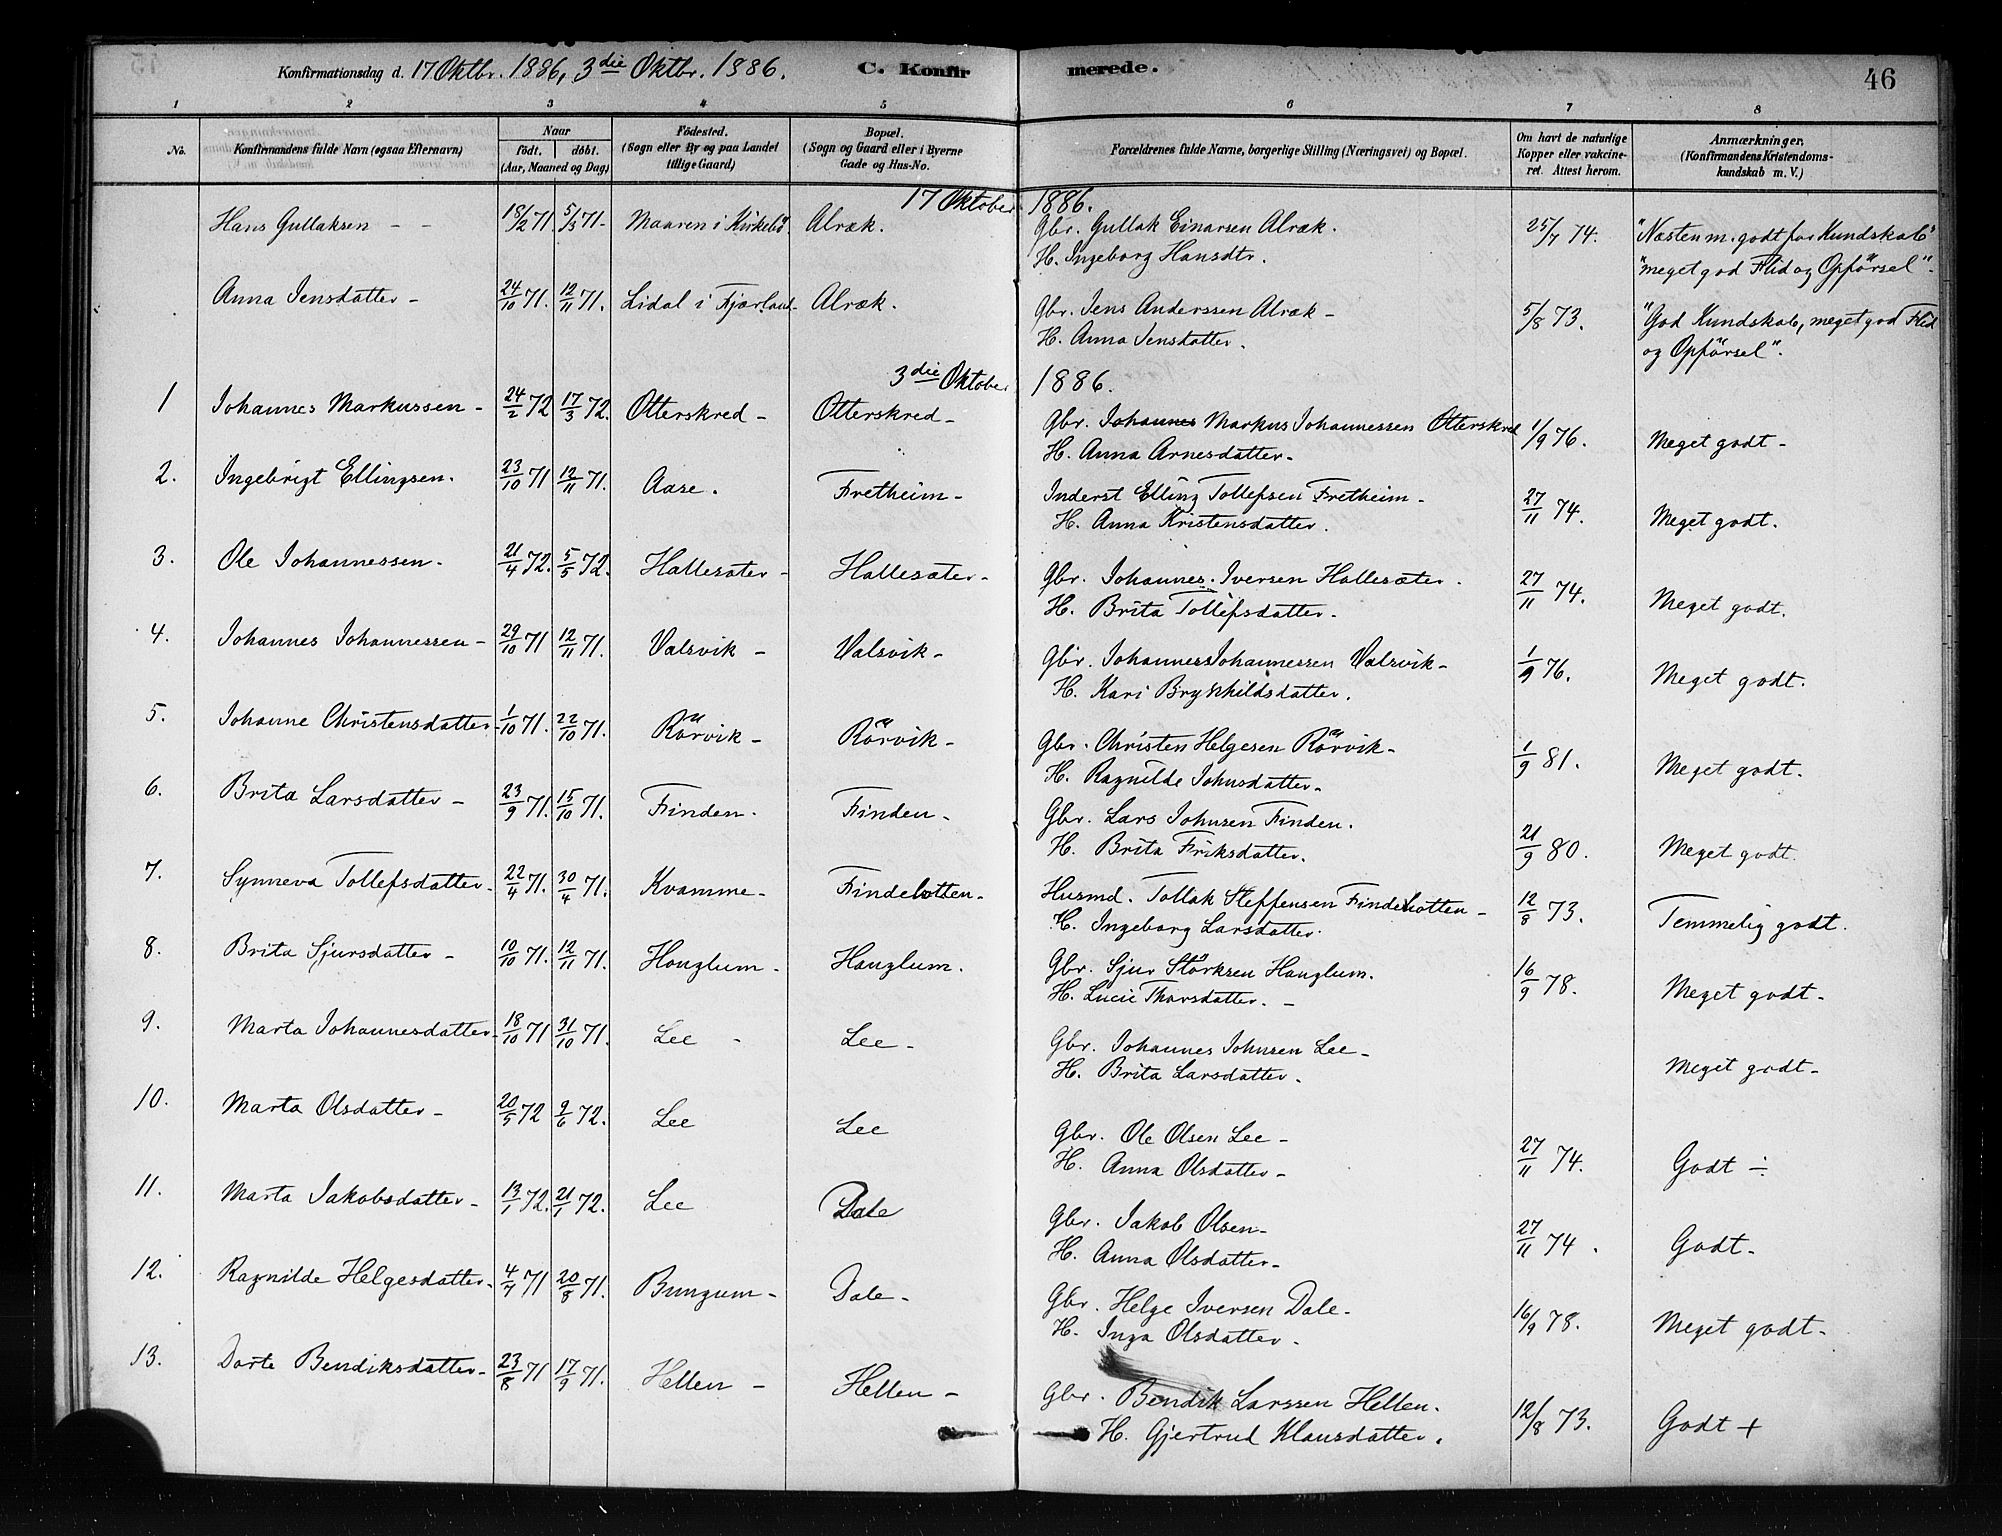 Konfirmationsdag d. 17 Oktbr. 1886, 3die Oktbr. 1886. C. Konfirmerede. 46
1 2 3 4 5 6 7 8
No. Konfirmandens fulde Navn (ogsaa Efternavn) Naar födt. döbt. (Aar, Maaned og Dag) Födested. (Sogn eller By og paa Landet tillige Gaard) Bopæl. (Sogn og Gaard eller i Byerne Gade og Hus-No. Forældrenes fulde Navne, borgerlige Stilling (Næringsvei) og Bopæl. Om havt de naturlige Kopper eller vakcineret. Attest herom. Anmærkninger. (Konfirmandens Kristendomskundskab m. V.)
17 Oktober 1886.
Hans Gullaksen - - 18/2 71. 5/3 71. Maaren i Kirkebö Alræk. Gbr. Gullak Einarsen Alræk. 25/7 74. "Næsten m. godt for Kundskab"
H. Ingeborg Hansdtr. "meget god Flid og Opförsel".
Anna Jensdatter - 24/10 71. 12/11 71. Lidal i Fjærland. Alræk. Gbr. Jens Anderssen Alræk - 5/8 73. "God Kundskab, meget god Flid
H. Anna Jensdatter. og Opförsel".
3die Oktober 1886.
1 Johannes Markussen - 24/2 72 17/3 72. Otterskred - Otterskred - Gbr. Johannes Markus Johannessen Otterskred 1/9 76. Meget godt -
H. Anna Arnesdatter -
2. Ingebrigt Ellingsen. 23/10 71 12/11 71. Aase. Fretheim - Inderst Elling Tollefsen Fretheim - 27/11 74. Meget godt.
H. Anna Kristensdatter.
3. Ole Johannessen. 21/4 72. 5/5 72. Hallesæter - Hallesæter - Gbr. Johannes Iversen Hallesæter. 27/11 74. Meget godt.
H. Brita Tollefsdatter -
4. Johannes Johannessen - 29/10 71 12/11 71. Valsvik - Valsvik - Gbr. Johannes Johannessen Valsvik - 1/9 76. Meget godt.
H. Kari Brynhildsdatter.
5. Johanne Christensdatter - 1/10 71. 22/10 71. Rörvik - Rörvik - Gbr. Christen Helgesen Rörvik - 1/9 81. Meget godt.
H. Ragnilde Johnsdatter -
6. Brita Larsdatter - 23/9 71. 15/10 71. Finden. Finden - Gbr. Lars Johnsen Finden. 21/9 80. Meget godt.
H. Brita Eriksdatter.
7. Synneva Tollefsdatter - 22/4 71. 30/4 71. Kvamme - Findebotten - Husmd. Tollak Steffensen Findebotten - 12/8 73. Temmelig godt.
H. Ingeborg Larsdatter.
8. Brita Sjursdatter - 10/10 71. 12/11 71. Hanglum - Hanglum. Gbr. Sjur Störksen Hanglum. 16/9 78. Meget godt -
H. Lucie Thorsdatter. -
9. Marta Johannesdatter - 18/10 71 31/10 71. Lee - Lee - Gbr. Johannes Johnsen Lee - Meget godt -
H. Brita Larsdatter.
10. Marta Olsdatter - 20/5 72 9/6 72. Lee Lee Gbr. Ole Olsen Lee - 27/11 74. Godt ÷
H. Anna Olsdatter -
11. Marta Jakobsdatter - 13/1 72. 21/1 72. Lee Dale Gbr. Jakob Olsen - 27/11 74. Godt -
H. Anna Olsdatter -
12. Ragnilde Helgesdatter - 4/7 71 20/8 71. Bungum - Dale - Gbr. Helge Iversen Dale - 16/9 78. Meget godt -
H. Inga Olsdatter -
13. Dorte Bendiksdatter - 23/8 71 17/9 71. Hellen - Hellen - Gbr. Bendik Larssen Hellen. 12/8 73. Godt +
H. Gjertrud Klausdatter.